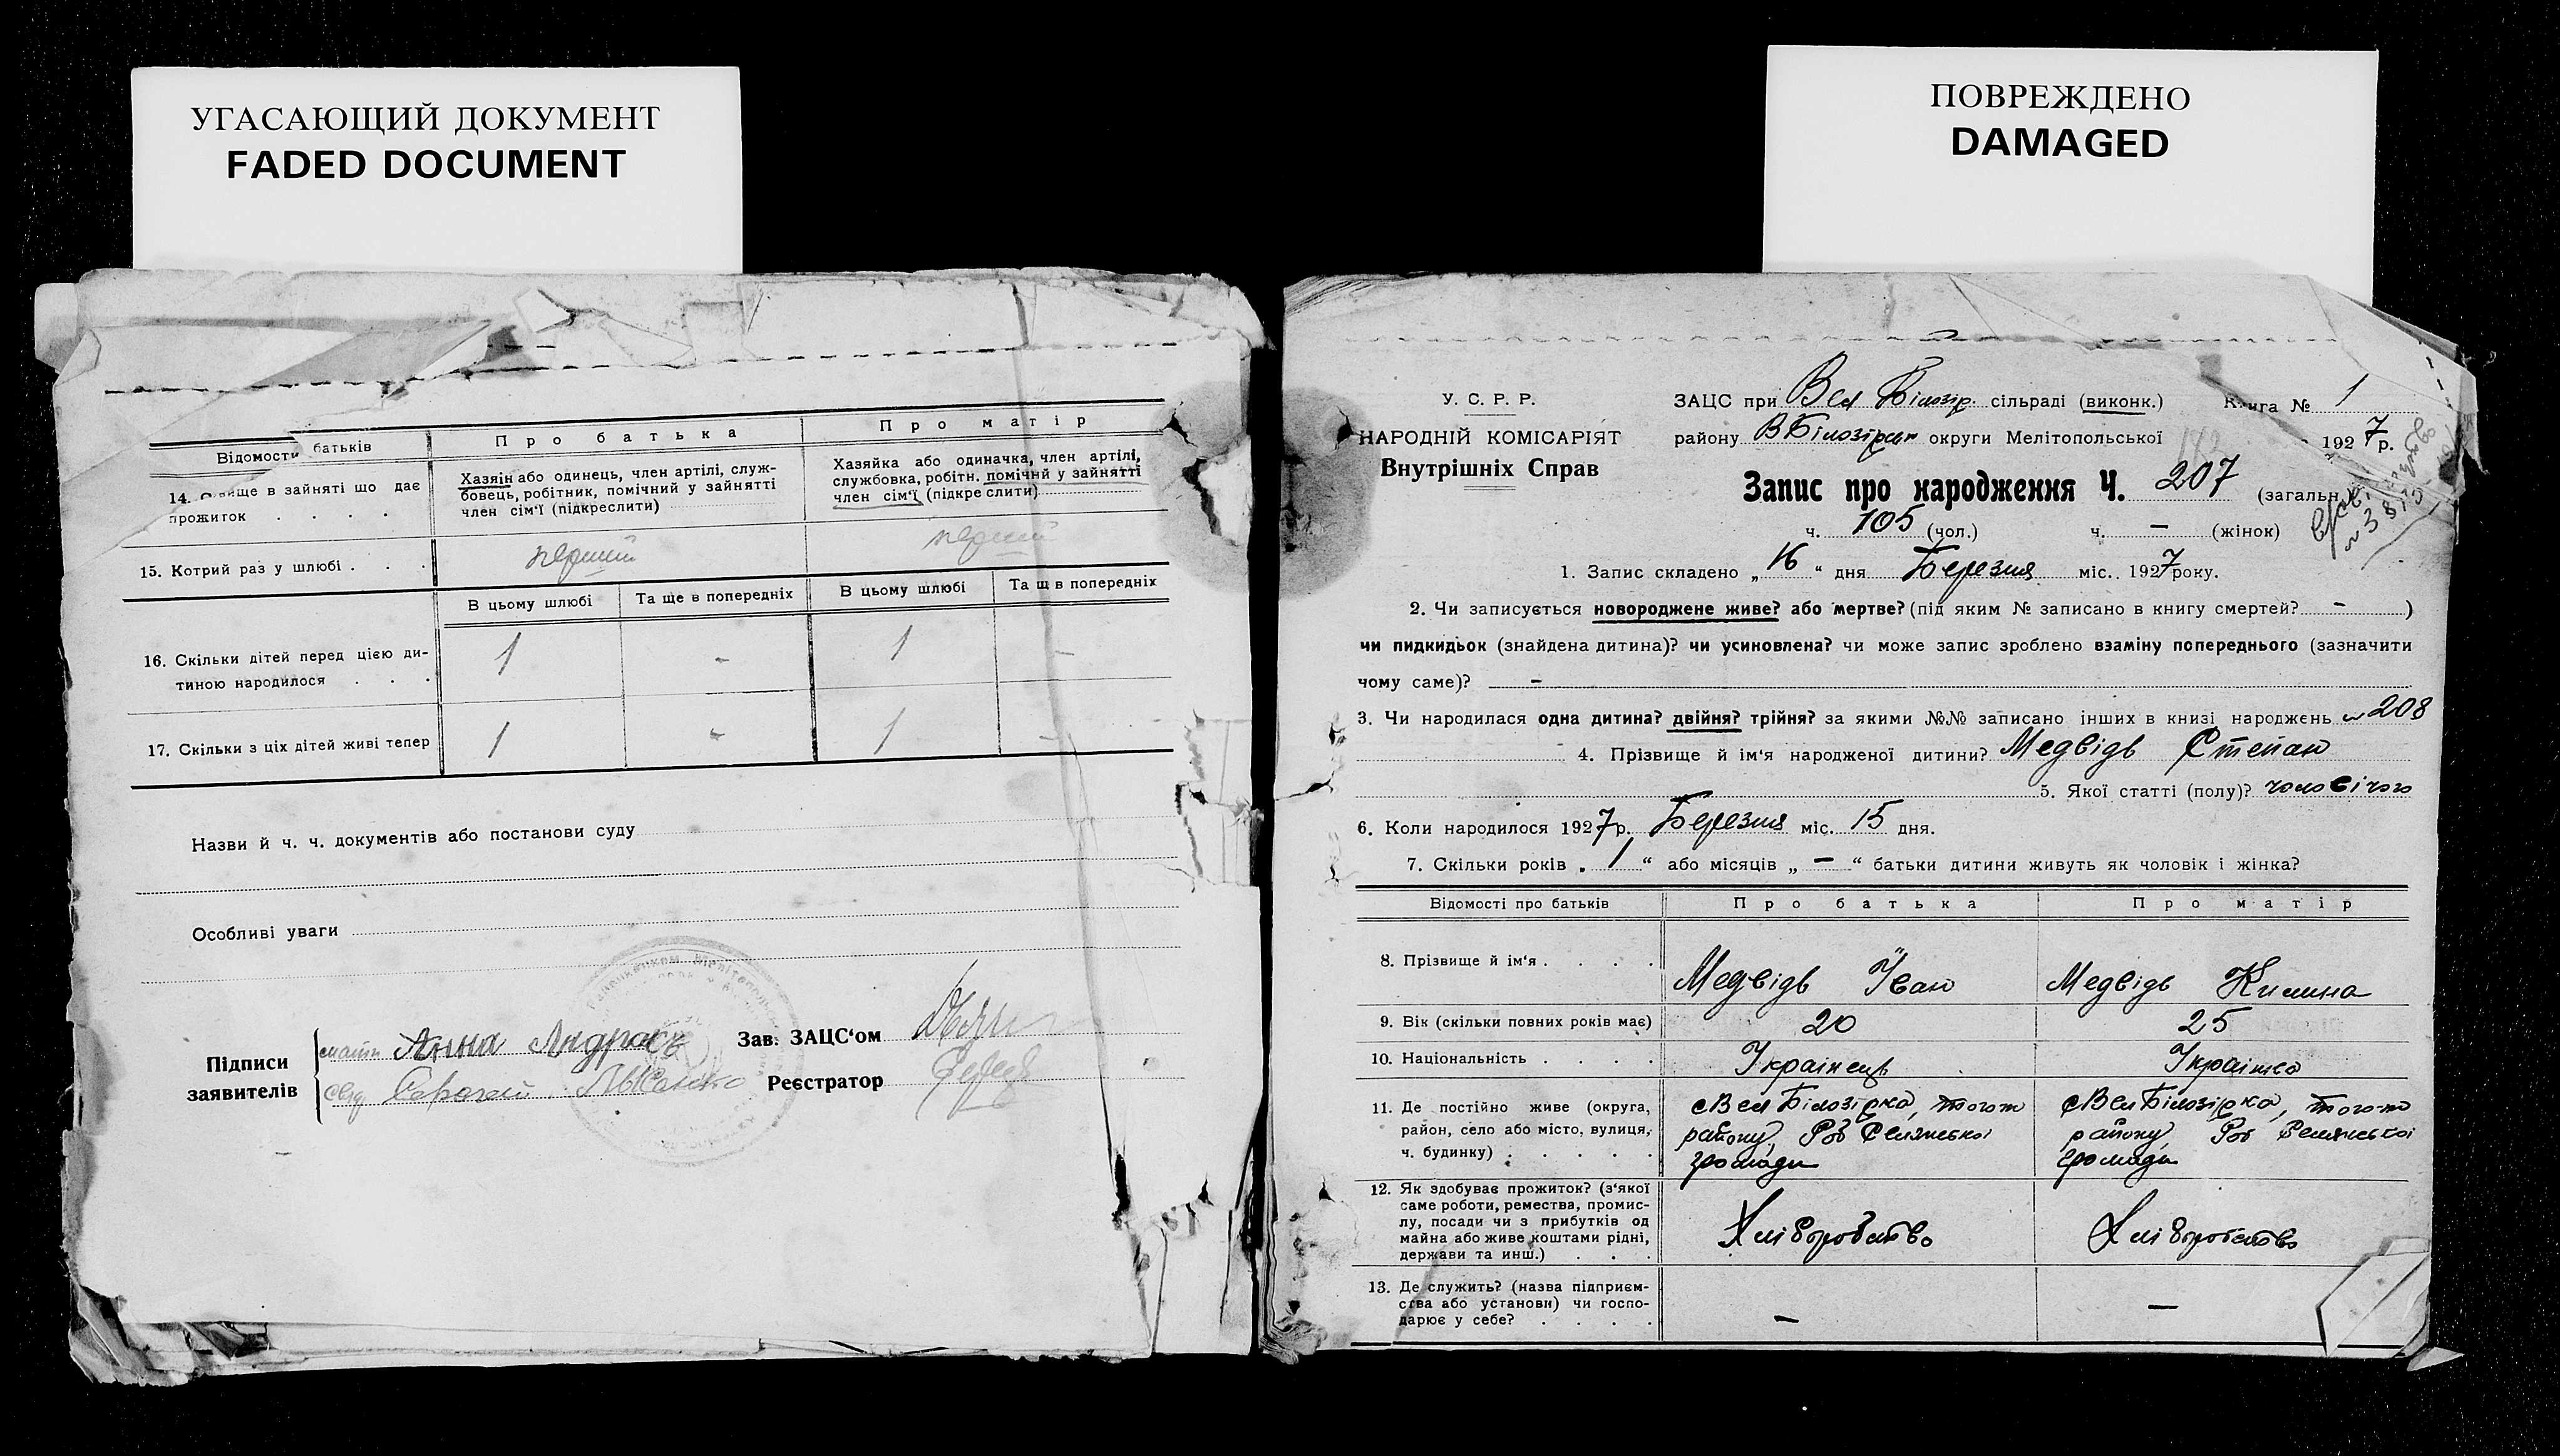 УГАСАЮЩИЙ ДОКУМЕНТ
FADED DOCUMENT
ПОВРЕЖДЕНО
DAMAGED
Відомости батьків
Про батька
Про матір
14. вище в зайняті що дає
прожиток . . . .
Хазяін або одинець, член артілі, служ-
бовець, робітник, помічний у зайнятті
член сім'ї (підкреслити)
Хазяйка або одиначка, член артілі,
службовка, робітн. помічни у зайнятті
член сім'ї (підкре слити)
15. Котрий раз у шлюбі . . .
перший
перший
В цьому шлюбі
Та ще в попередніх
В цьому шлюбі
Та щ в попередніх
16. Скільки дітей перед цією ди-
тиною народилося . . .
1 - 1 -
17. Скільки з ціх дітей живі тепер
1 - 1 -
Назви й ч. ч. документів або постанови суду
Особливі уваги
Підписи
заявителів
мати Анна
Сергей
Зав. ЗАЦС'ом
Реєстратор
У. С. Р. Р.
НАРОДНІЙ КОМІСАРІЯТ
Внутрішніх Справ
ЗАЦС при Вел Білозір. сільраді (виконк.)
Книга № 1
району ВБілозірськ округи Мелітопольської
192 7 р.
Запис про народження Ч. 207 (загальн
ч. 105 (чол.) ч. — (жінок)
1. Запис складено „16“ дня Березня міс. 1927 року.
2. Чи записується новороджене живе? або мертве? (під яким № записано в книгу смертей? - )
чи пидкидьок (знайдена дитина)? чи усиновлена? чи може запис зроблено взаміну попереднього (зазначити
чому саме)? -
3. Чи народилася одна дитина? двійня? трійня? за якими №№ записано інших в книзі народжень 208
4. Прізвище й ім'я народженої дитини? Медвідь Степан
5. Якої статті (полу)? чоловічого
6. Коли народилося 1927 р. Березня міс. 15 дня.
7. Скільки років „ 1 “ або місяців „ — “ батьки дитини живуть як чоловік і жінка?
Відомості про батьків
Про батька
Про матір
8. Прізвище й ім'я . . . .
Медвідь Іван
Медвідь Килина
9. Вік (скільки повних років має)
20
25
10. Національність . . . .
Українець
Українка
11. Де постійно живе (округа,
район, село або місто, вулиця,
ч. будинку) . . . . .
с Вел Білозірка, того ж
району, Роб Селянської
громади
с Вел Білозірка, того-ж
району, Роб Селянської
громади
12. Як здобуває прожиток? (з'якої
саме роботи, ремества, промис-
лу, посади чи з прибутків од
майна або живе коштами рідні,
держави та инш.) . . .
Хліборобство
Хліборобство
13. Де служить? (назва підприєм-
ства або установи) чи госпо-
дарює у себе? . . . .
—
—